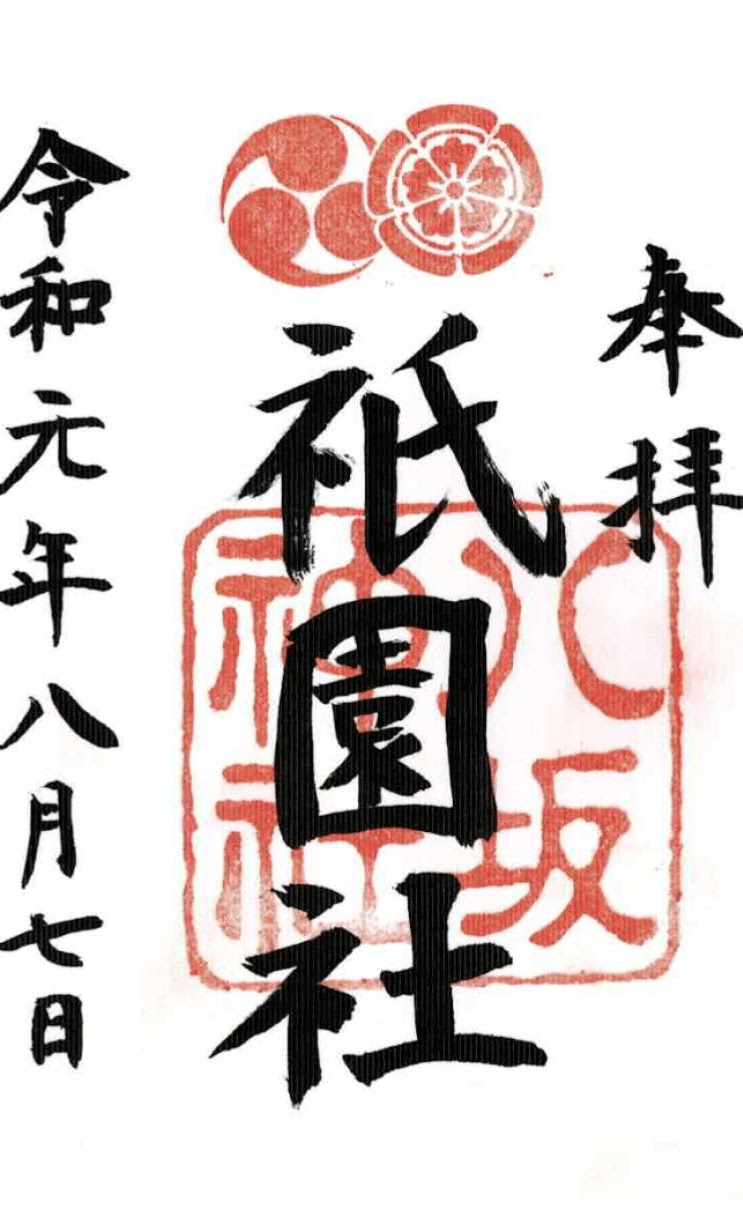 奉拝
祇園社
八坂
神社
令和元年八月七日